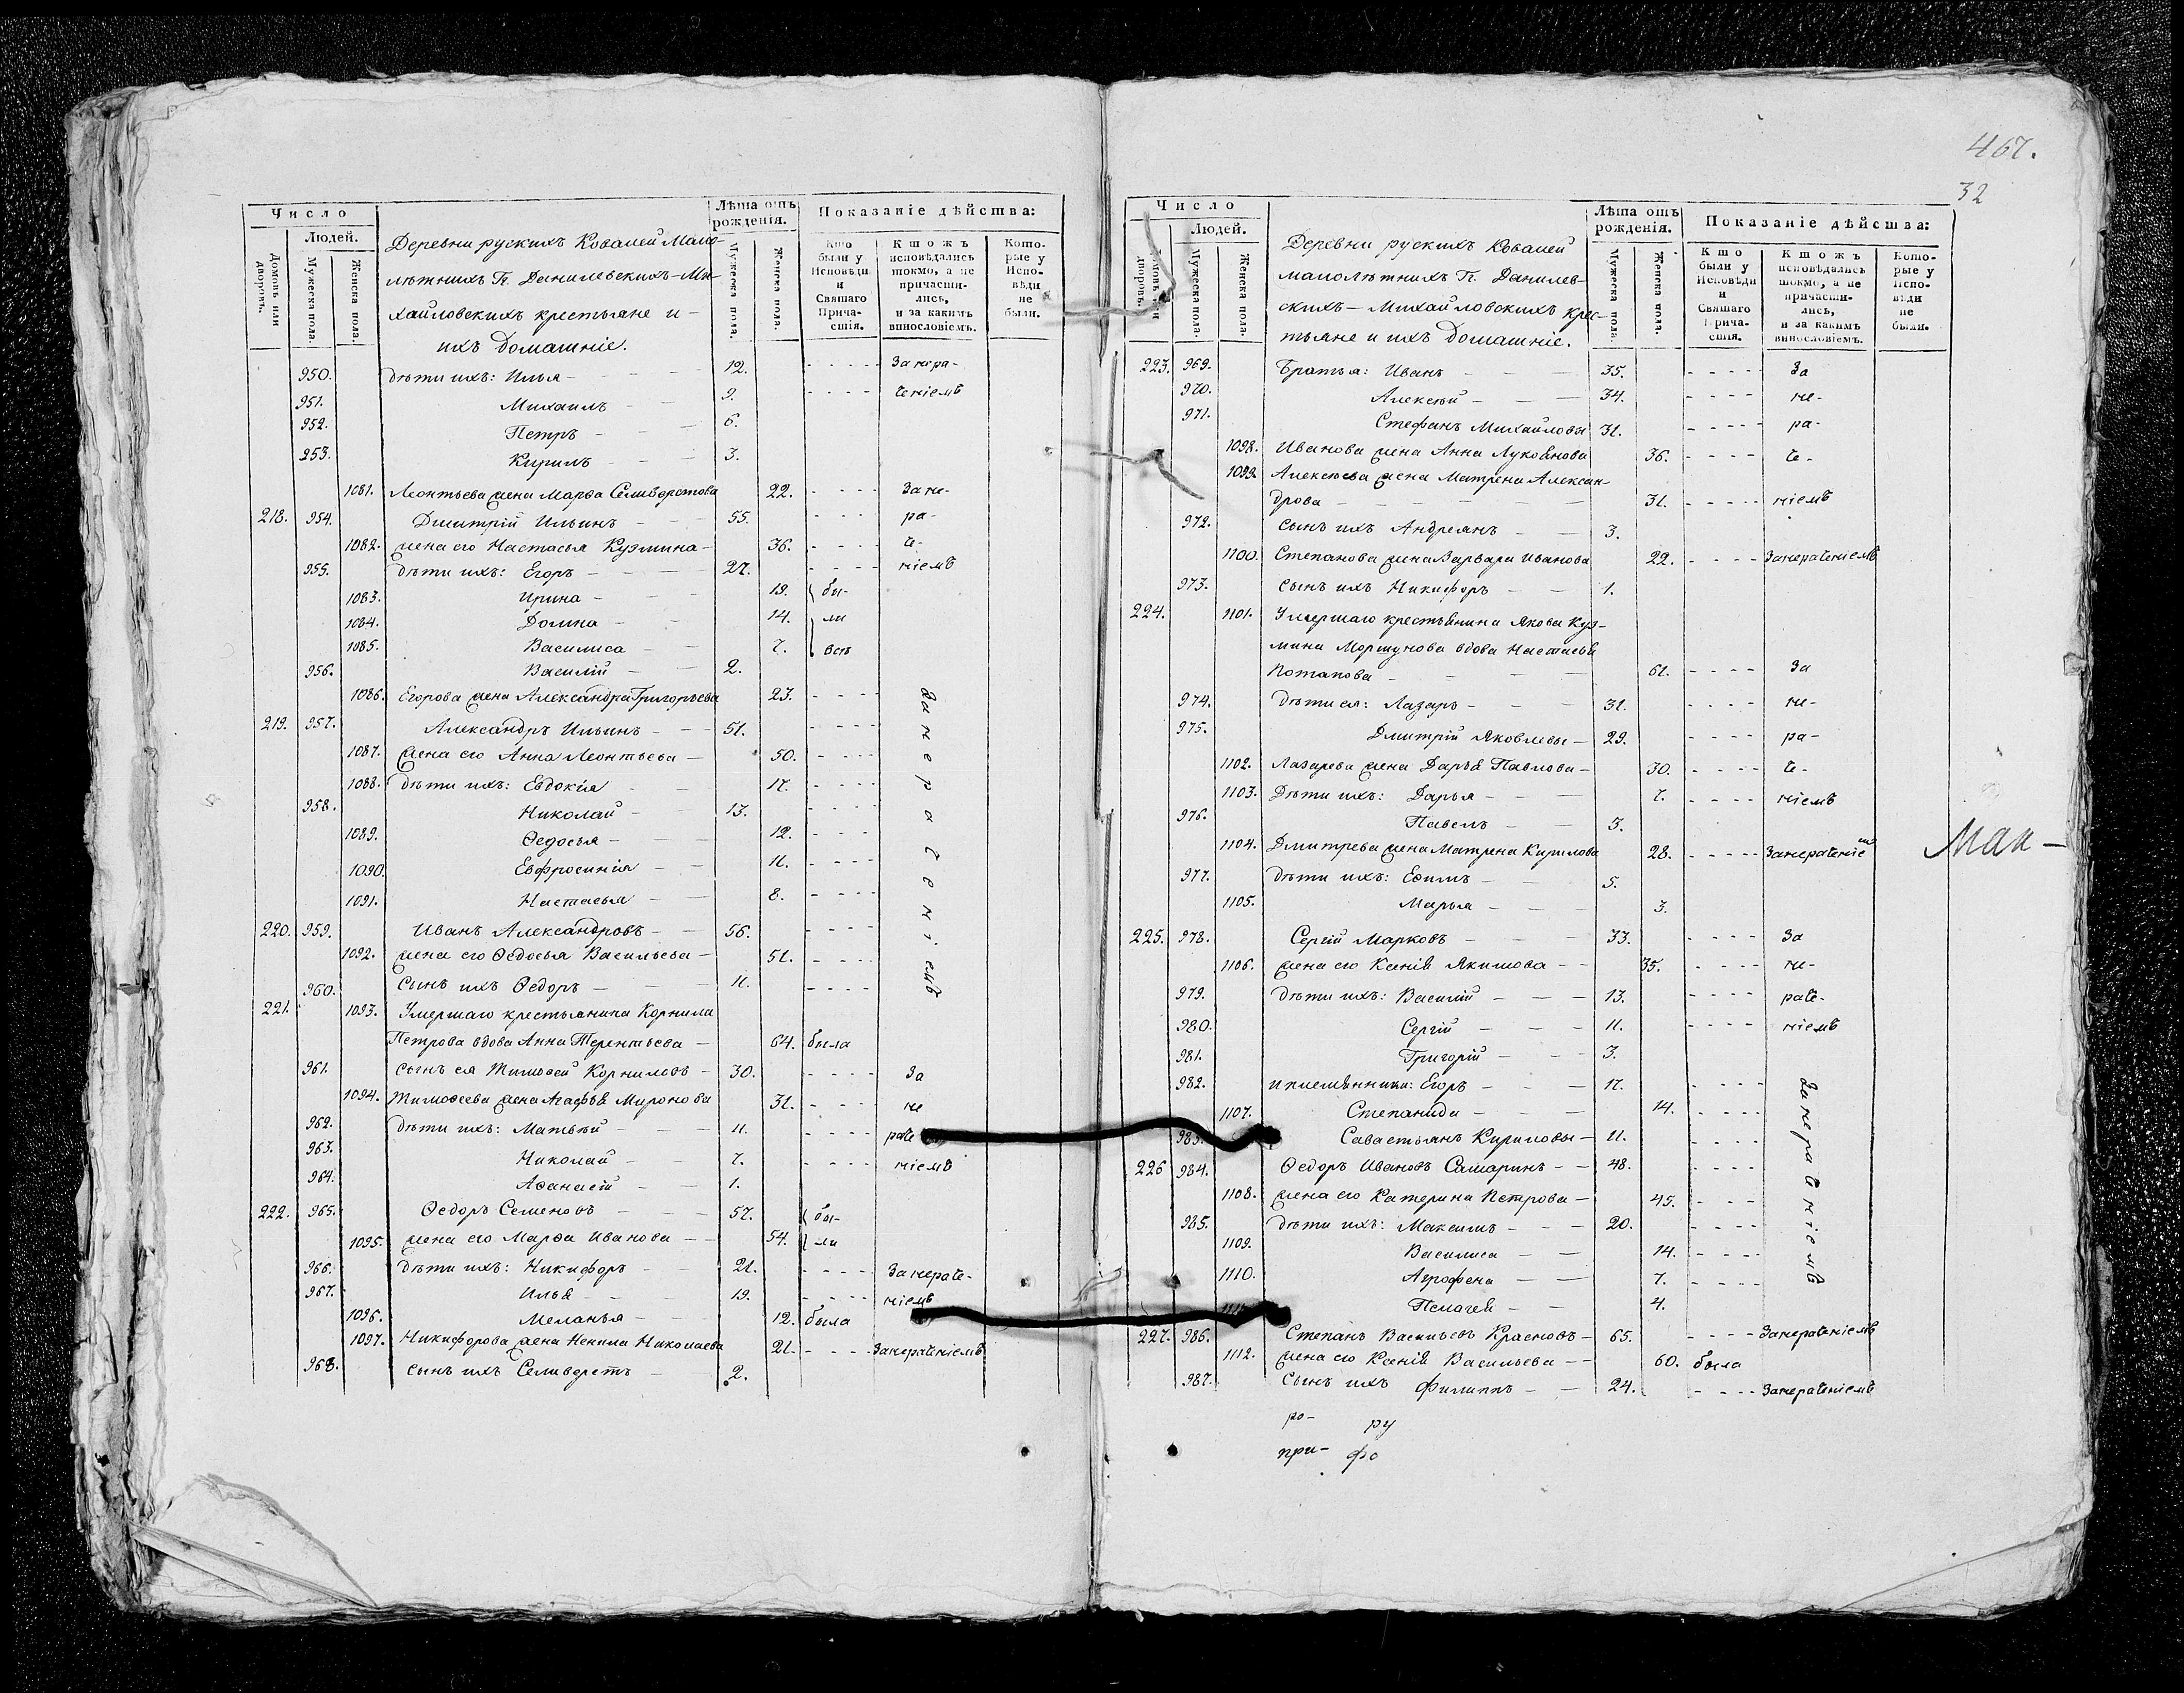 Число
Людей.
Домовъ или дворовъ.
Мужеска пола.
Женска пола.
Деревни рускихъ Ковалей Мало-
лѣтнихъ Гг. Данилевскихъ-Ми-
хайловскихъ крестьяне и
ихъ домашніе.
Лѣта отъ рожденія.
Мужеска пола.
Женска пола.
Показаніе дѣйства:
Кто были у Исповѣди и Святаго Прича-стія.
Ктожъ исповѣдались токмо, а не причасти-лись, и за какимъ винословіемъ.
Кото-рые у Испо-вѣди не были.
950. Дѣти ихъ: Илья - 12. - - - - За нера-
951. Михаилъ - 9. - - - - ченіемъ
952. Петръ - 6.
953. Кирилъ - 3.
1081. Леонтьева жена Марѳа Селиверстова 22. - - - - За не-
218. 954. Дмитрій Ильинъ - 55. - - - ра-
1082. жена его Настасья Кузмина - 36. - - - - че-
955. дѣти ихъ: Егоръ - 27. - - - - ніемъ
1083. Ирина - 19. бы-
1084. Домна - 14. ли
1085. Василиса - 7. всѣ
956. Василій - 2.
1086. Егорова жена Александра Григорьева 23. - - - - За нераченіемъ
219. 957. Александръ Ильинъ - 51. - - - -
1087. жена его Анна Леонтьева - 50. - - - -
1088. дѣти ихъ: Евдокія - 17. - - - -
958. Николай - 13. - - - -
1089. Ѳедосья - 12. - - - -
1090. Евфросинія - 11. - - - -
1091. Настасья - 8. - - - -
220. 959. Иванъ Александровъ - 56. - - - -
1092. жена его Ѳедосья Васильева - 51. - - - -
960. Сынъ ихъ Ѳедоръ - 11. - - - -
221. 1093. Умершаго крестьянина Корнила
Петрова вдова Анна Терентьева - 64. была
961. сынъ ея Тимоѳей Корниловъ - 30. - - - - За
1094. Тимоѳеева жена Агафья Миронова 31. - - - - не
962. дѣти ихъ: Матвѣй - 11. - - - - раче
963. Николай - 7. - - - - ніемъ
964. Аѳанасій - 1.
222. 965. Ѳедоръ Семеновъ - 57. бы-
1095. жена его Марѳа Иванова - 54. ли
966. дѣти ихъ: Никифоръ - 21. - - - - За нераче-
967. Илья - 19. - - - - ніемъ
1096. Меланья - 12. была
1097. Никифорова жена Ненила Николаева 21. - - - - За нераченіемъ
968. сынъ ихъ Селиверстъ - 2.
467.
32
Число
Людей.
Домовъ или дворовъ.
Мужеска пола.
Женска пола.
Деревни рускихъ Ковалей
малолѣтнихъ Гг. Данилев-
скихъ - Михайловскихъ крес-
тьяне и ихъ домашніе.
Лѣта отъ рожденія.
Мужеска пола.
Женска пола.
Показаніе дѣйства:
Кто были у Исповѣди и Святаго Прича-стія.
Ктожъ исповѣдались токмо, а не причасти-лись, и за какимъ винословіемъ.
Кото-рые у Испо-вѣди не были.
223. 969. Братья: Иванъ - 35. - - - - За
970. Алексѣй - 34. - - - - не-
971. Стефанъ Михайловы 31. - - - - ра-
1098. Иванова жена Анна Лукоянова 36. - - - - че-
1099. Алексѣева жена Матрена Алексан-
дрова - 31. - - - - ніемъ
972. сынъ ихъ Андреянъ - 3.
1100. Степанова жена Варвара Иванова 22. - - - - За нераченіемъ
973. сынъ ихъ Никифоръ - 1.
224. 1101. Умершаго крестьянина Якова Куз-
мина Моршунова вдова Настасья
Потапова - 61. - - - - За
974. дѣти ея: Лазарь - 31. - - - - не-
975. Дмитрій Яковлевы - 29. - - - - ра-
1102. Лазарева жена Дарья Павлова - 30. - - - - че-
1103. Дѣти ихъ: Дарья - 7. - - - - ніемъ
976. Павелъ - 3.
1104. Дмитрева жена Матрена Кирилова 28. - - - - За нераченіемъ
977. дѣти ихъ: Ефимъ - 5.
1105. Марья - 3.
225. 978. Сергѣй Марковъ - 33. - - - - За
1106. жена его Ксенія Якимова - 35. - - - - не-
979. дѣти ихъ: Василій - 13. - - - - раче-
980. Сергій - 11. - - - - ніемъ
981. Григорій - 3.
982. и племянники: Егоръ - 17. - - - - За нераченіемъ
1107. Степанида - 14. - - - -
983. Савастьянъ Кириловы - 11. - - - -
226 984. Ѳедоръ Ивановъ Самаринъ - 48. - - - -
1108. жена его Катерина Петрова - 45. - - - -
985. дѣти ихъ: Максимъ - 20. - - - -
1109. Василиса - 14. - - - -
1110. Агрофена - 7. - - - -
1111. Пелагея - 4.
227. 986. Степанъ Васильевъ Красновъ - 65. - - - - За нераченіемъ
1112. жена его Ксенія Васильева - 60. была
987. Сынъ ихъ Филиппъ - 24. - - - - За нераченіемъ
Мак-
ро- ру
при- фо